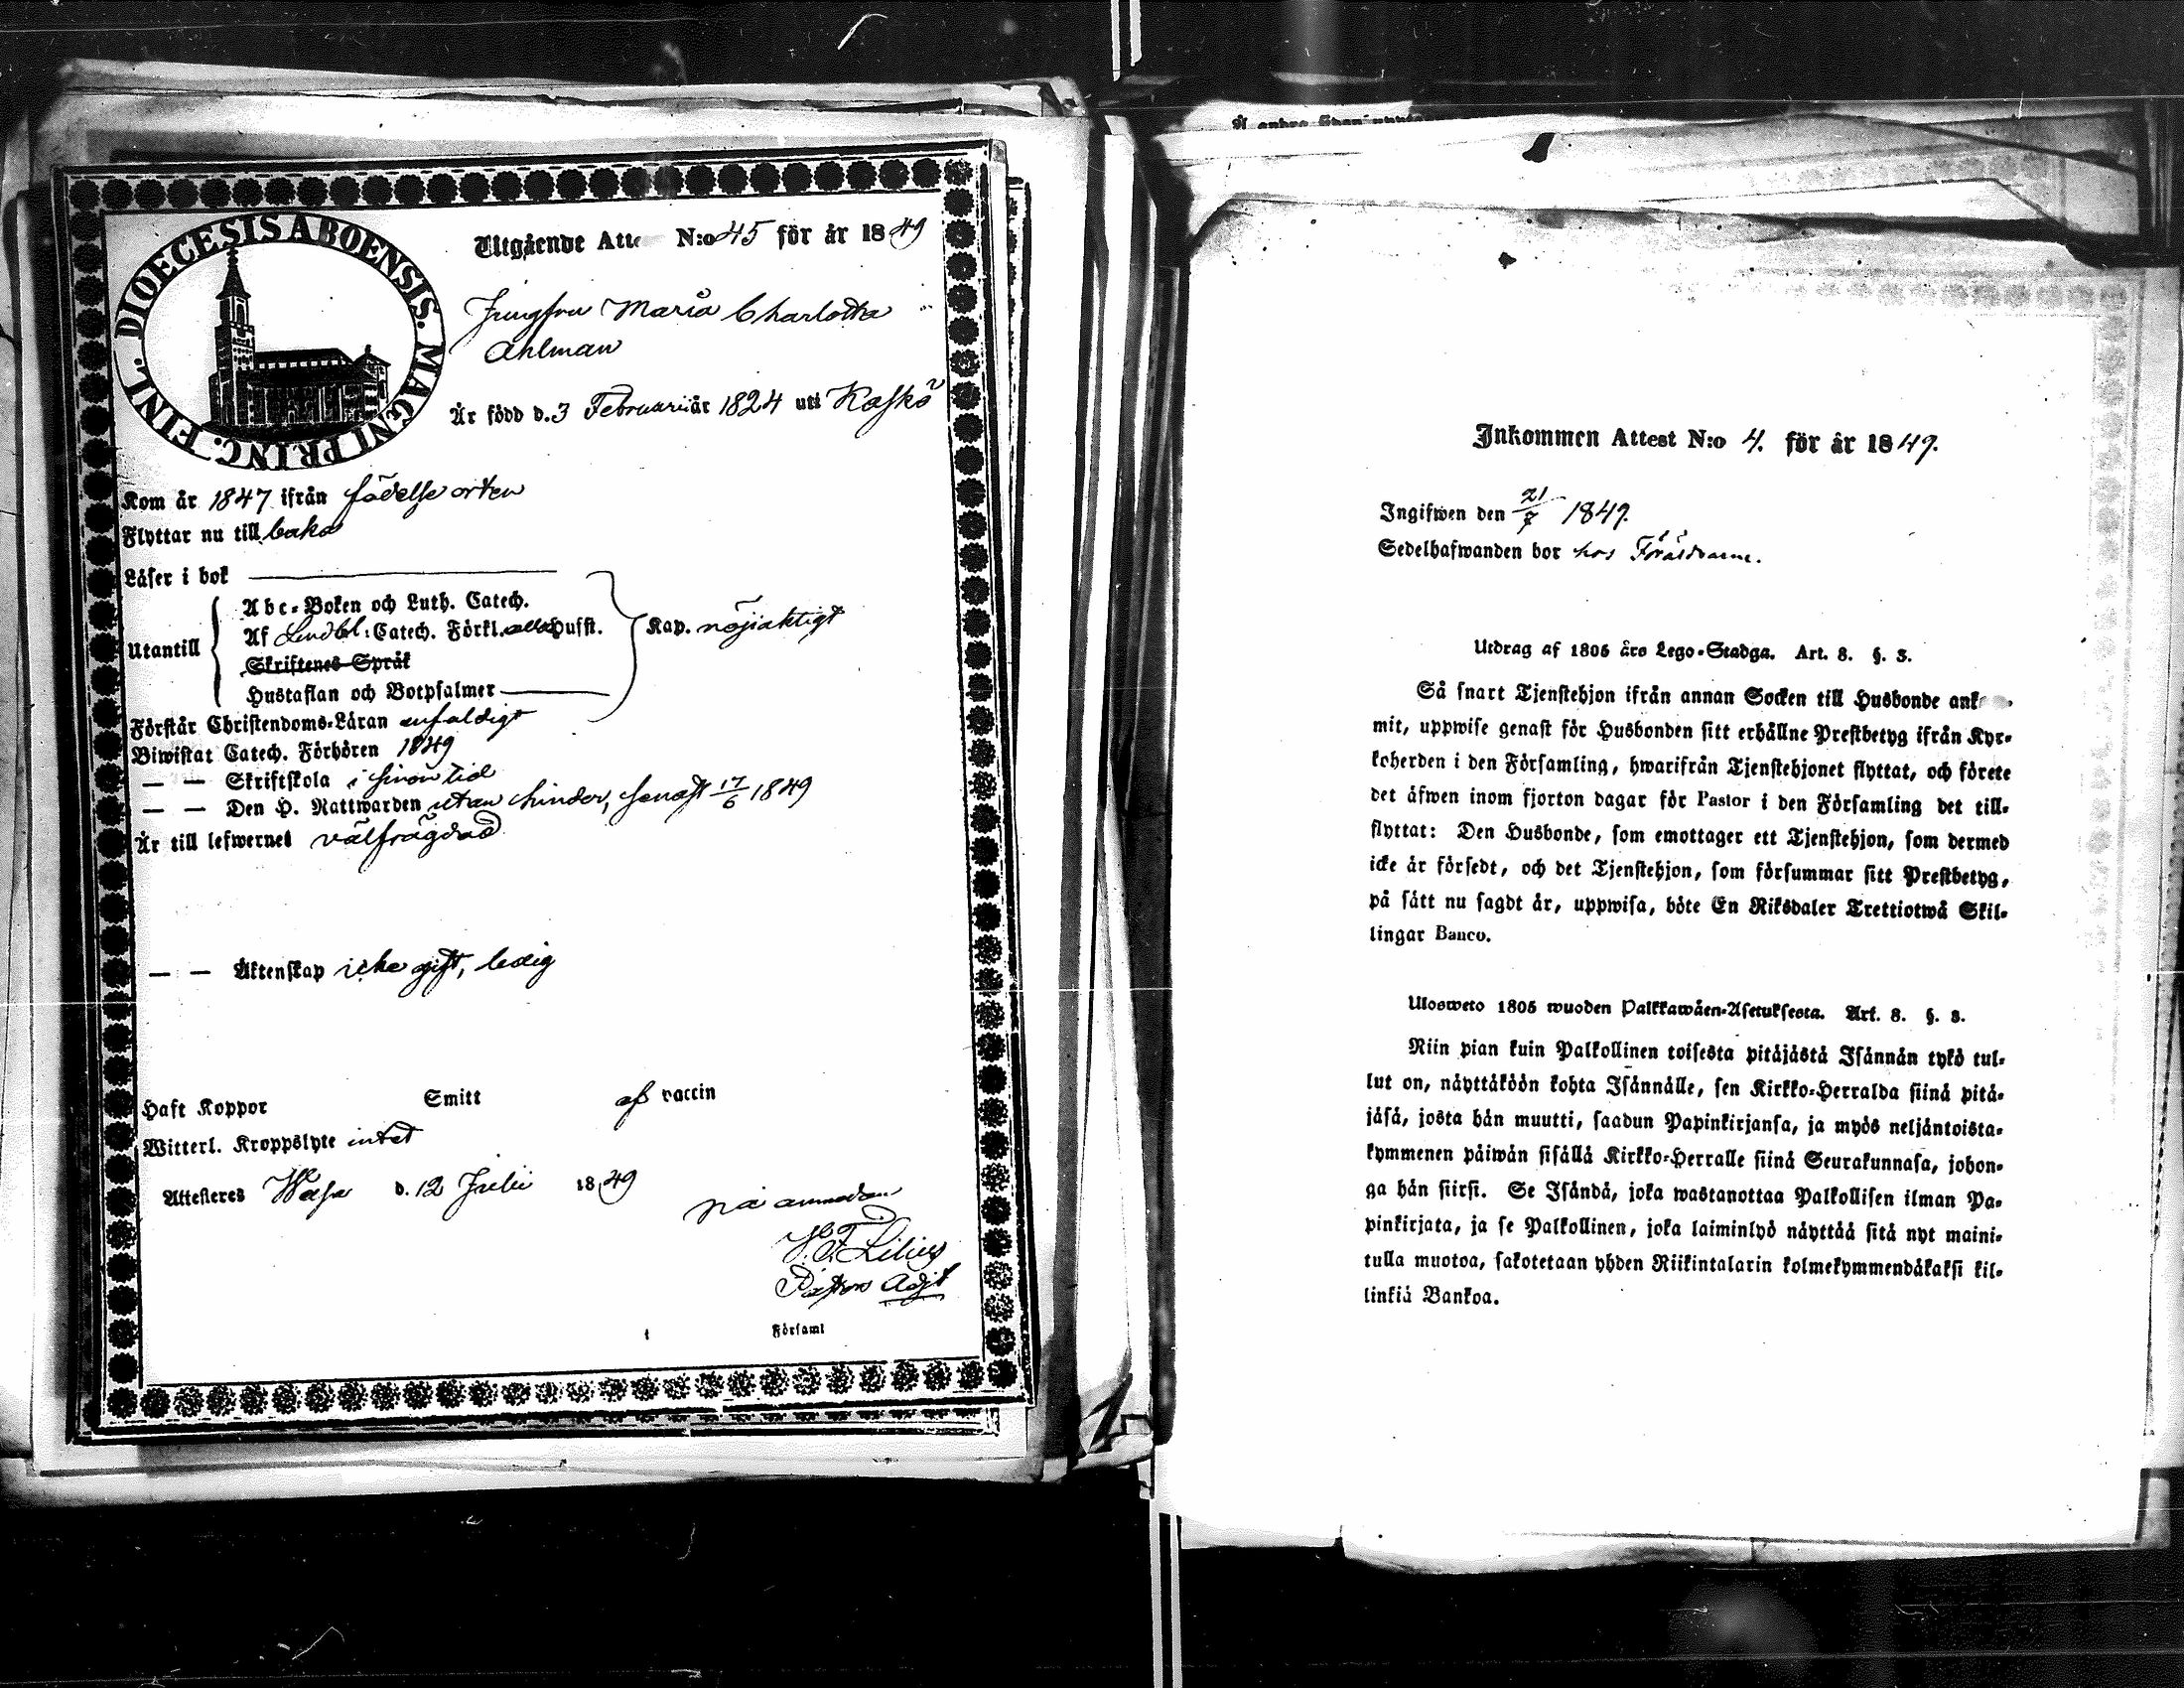 DIOECESIS ABOENSIS. MAGNI PRINC. FINL.
Utgående Att N:o 45 för år 1849
Jungfru Maria Charlotta
Ahlman
Är född d. 3 Februarii år 1824 uti Kaskö
Kom år 1847 ifrån födelse orten
Flyttar nu till baka
Läser i bok
Utantill
Abc-Boken och Luth. Catech.
Af Lindbl: Catech. Förkl. Hufst.
Skriftenes Språk
Hustaflan och Botpsalmer
Kap. nöjaktigt
Förstår Christendoms-Läran enfaldigt
Biwistat Catech. Förhören 1849
— — Skriftskola i sinom tid
— — Den H. Nattwarden utan hinder, senast 17/6 1849
Är till lefwernet välfrägdad
— — Äktenskap icke gift, ledig
Haft Koppor Smitt af vaccin
Witterl. Kroppslyte intet
Attesteres Wasa d. 12 Julii 1849
På ämbetets
Lilius
Pastors Adjt
i Församl
Inkommen Attest N:o 4. för år 1849.
Ingifwen den 21/7 1849.
Sedelhafwanden bor hos Föräldrarne.
Utdrag af 1805 års Lego-Stadga. Art. 8. §. 3.
Så snart Tjenstehjon ifrån annan Socken till Husbonde ank
mit, uppwise genast för Husbonden sitt erhållne Prestbetyg ifrån Kyr-
koherden i den Församling, hwarifrån Tjenstehjonet flyttat, och förete
det äfwen inom fjorton dagar för Pastor i den Församling det till-
flyttat: Den Husbonde, som emottager ett Tjenstehjon, som dermed
icke är försedt, och det Tjenstehjon, som försummar sitt Prestbetyg,
på sätt nu sagdt är, uppwisa, böte En Riksdaler Trettiotwå Skil-
lingar Banco.
Ulosweto 1805 wuoden Palkkawäen-Asetuksesta. Art. 8. §. 3.
Niin pian kuin Palkollinen toisesta pitäjästä Isännän tykö tul-
lut on, näyttäköön kohta Isännälle, sen Kirkko-Herralda siinä pitä-
jäsä, josta hän muutti, saadun Papinkirjansa, ja myös neljäntoista-
kymmenen päiwän sisällä Kirkko-Herralle siinä Seurakunnasa, johon-
ga hän siirsi. Se Isändä, joka wastanottaa Palkollisen ilman Pa-
pinkirjata, ja se Palkollinen, joka laiminlyö näyttää sitä nyt maini-
tulla muotoa, sakotetaan yhden Riikintalarin kolmekymmendäkaksi kil-
linkiä Bankoa.